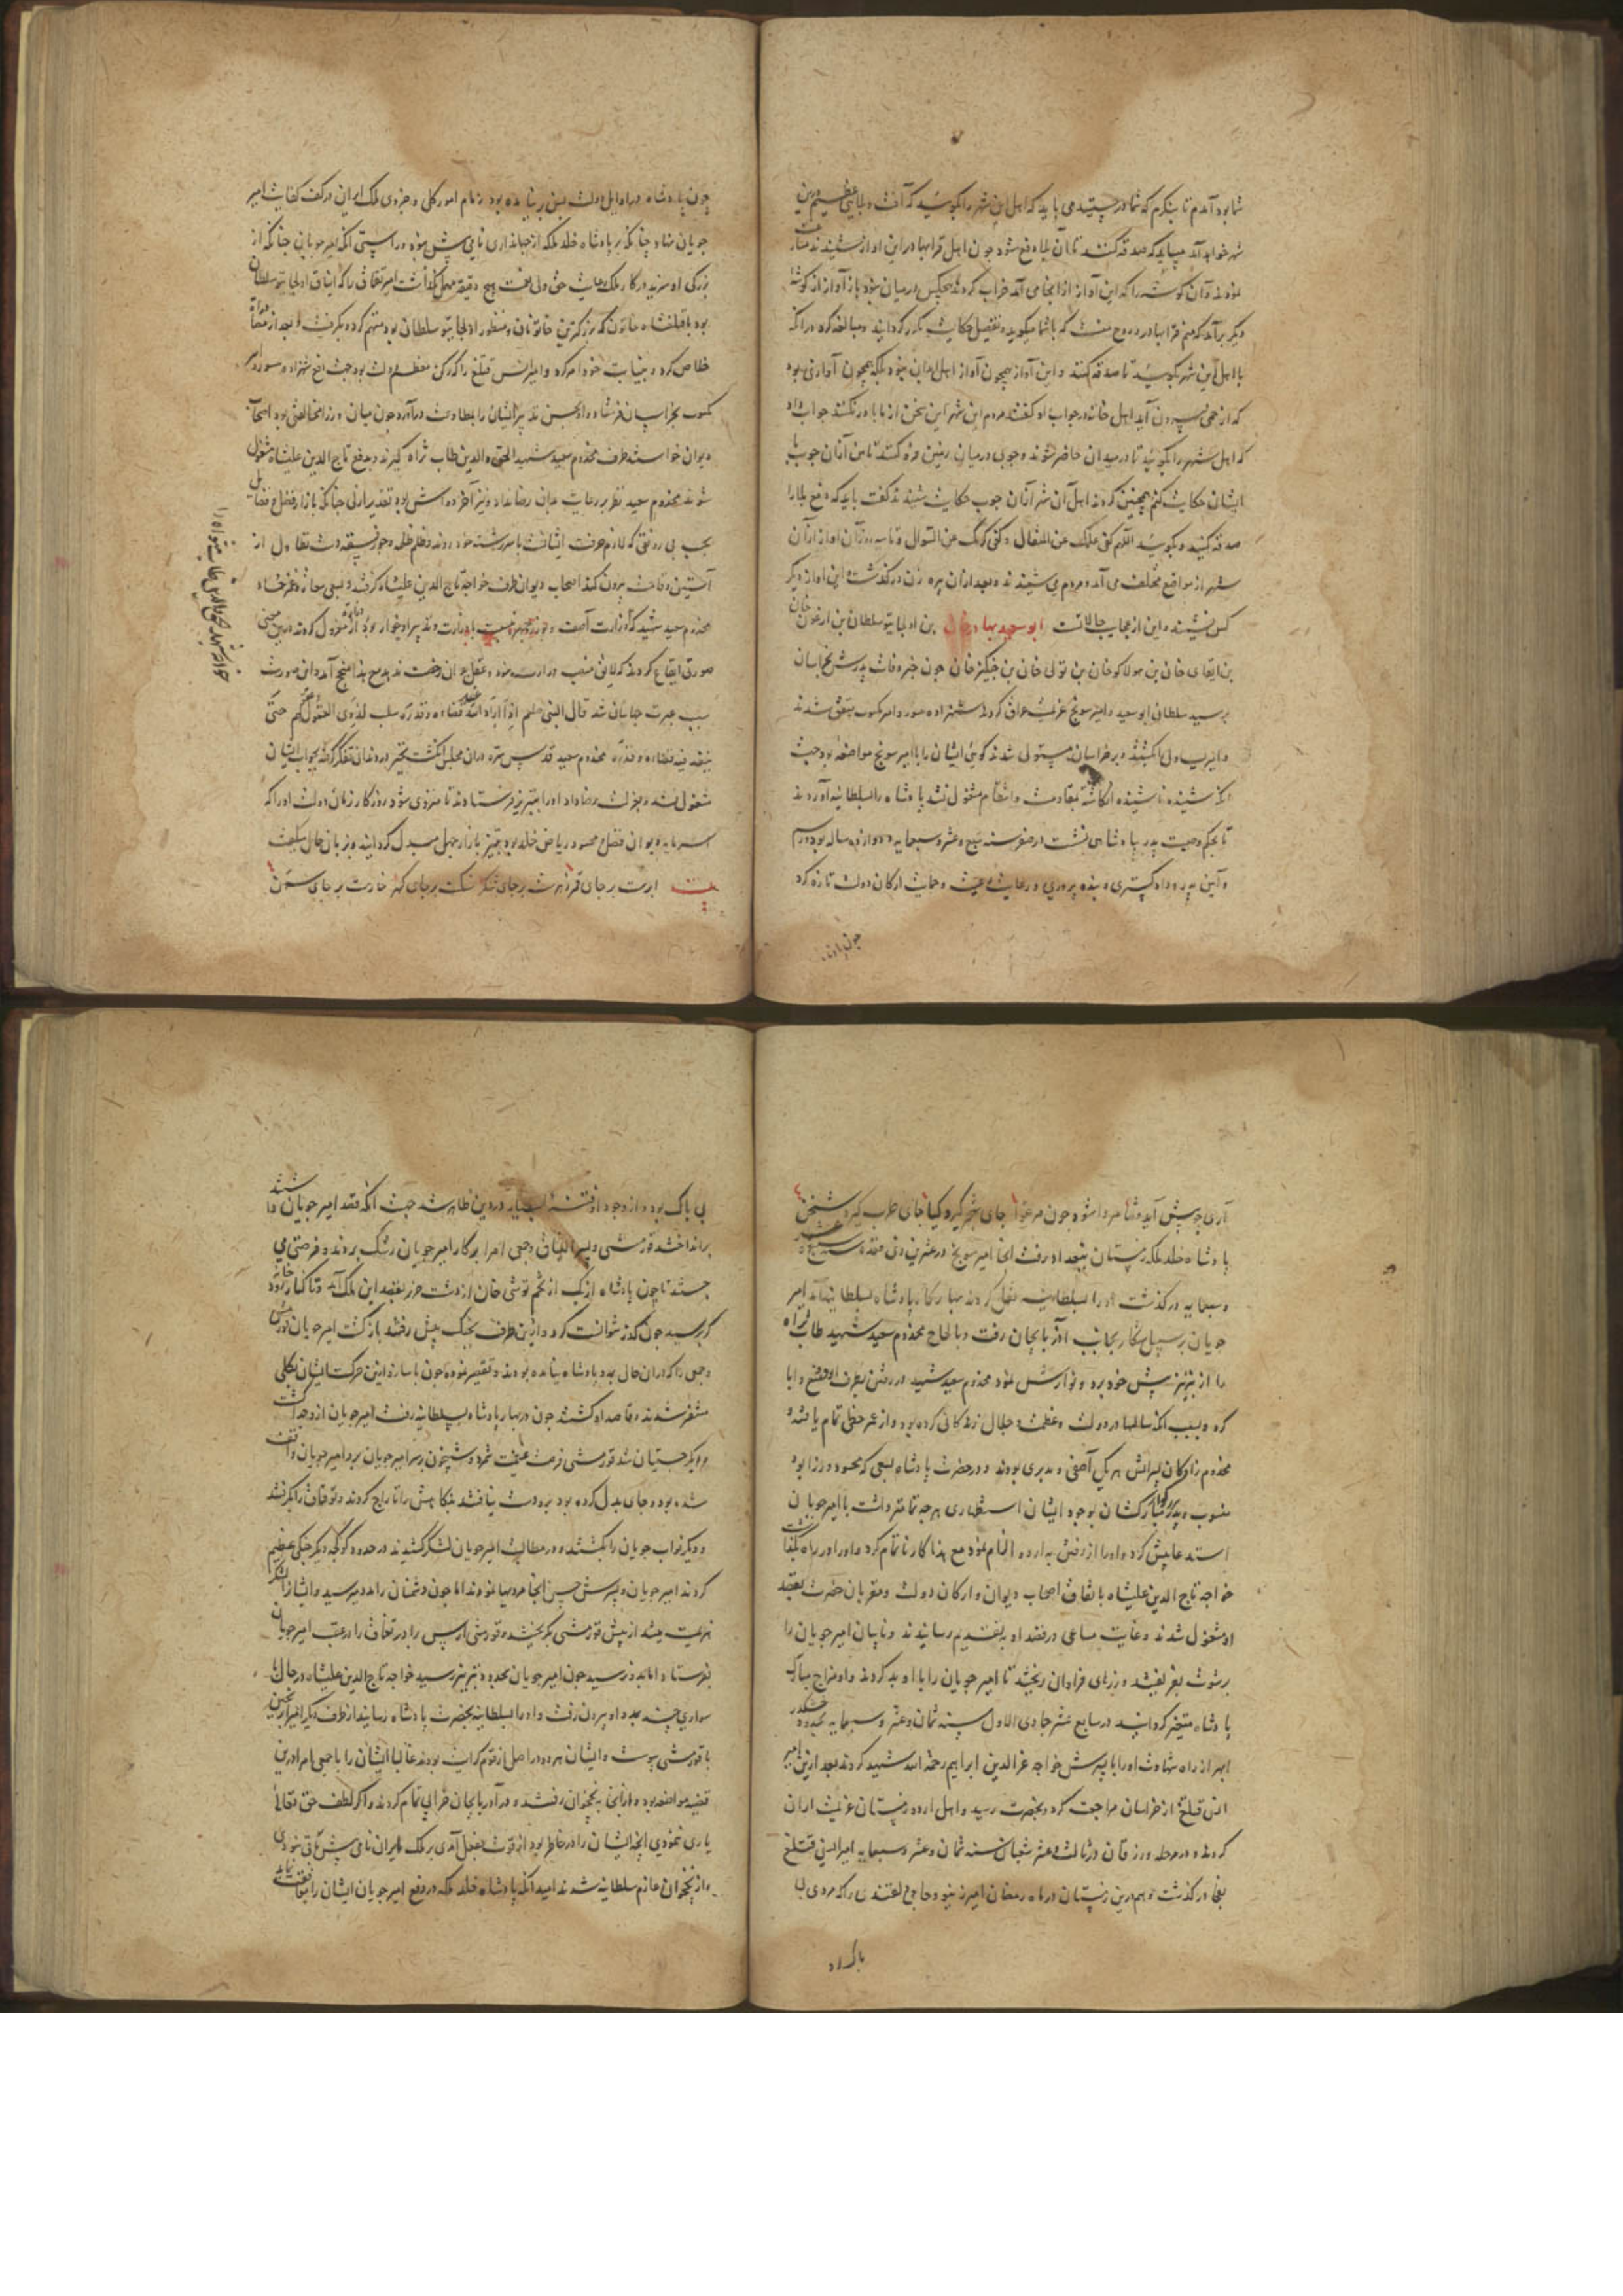 شما بود آمدم تا بنگرم که شما در چیستید می باید که اهل این شهر را بگویید که آفت و بلایی عظیم درین
شهر خواهد آمد میباید که صدقه کنند تا آن بلا دفع شود چون اهل قرابها در این آواز شنیدند
نمودند و آن گوشه را که این آواز از انجا می آمد خراب کردند هیچکس در میان نبود باز آواز از گوشهٔ
دیگر برآمد که منم که با شما میگوید و تفصیل حکایت مکرر گردانید و مبالغه کرد در آنکه
با اهل این شهر بگویید تا صدقه کنند و این آواز همچون آواز اهل این نبود بلکه همچون آوازی بود
که از خمی بیرون آید اهل خانه در جواب او گفتند مردم این شهر این سخن از ما باور نکنند جواب داد
که اهل شهر را بگویید تا در میدان حاضر شوند و چوبی در میان زمین فرو کنند تا من از آن چوب با
ایشان حکایت کنم همچنین کردند اهل آن شهر از آن چوب حکایت شنیدند گفت باید که دفع بلا را
صدقه کنید و بگویید اللهم کفی علمک عن المقال و کفی کرمک عن السوال و تا سه روز آن آواز از آن
شهر از مواضع مختلف می آمد و مردم می شنیدند و بعد از آن پیره زن درگذشت و این آواز دیگر
کس نشنید و این از عجایب حالاتست ابو سعید بهادر خان بن اولجایتو سلطان بن ارغون خان
بن ابقای خان بن هولاکو خان بن تولی خان بن چنگیز خان چون خبر وفات پدرش بخراسان
برسید سلطان ابو سعید و امیر سونج عزیمت عراق کردند شهزاده یسور و امیر بکتوت متفق شدند
و امیر یساول را بکشتند و بر خراسان مستولی شدند گویی ایشان را با امیر سونج مواضعه بود جهت
آنکه شنیده ناشنیده انگاشته بمقاومت و انتقام مشغول نشد پادشاه را بسلطانیه آوردند
تا بحکم وصیت پدر بپادشاهی نشست در صفر سنه سبع و عشر و سبعمایه و دوازده ساله بود و رسم
و آیین پدر و دادگستری و بنده پروری و رعایت رعیت و حمایت ارکان دولت تازه کرد
چون پادشاه
چون پادشاه در اوایل دولت بسن ده بود زمام امور کلی و جزوی ملک ایران در کف کفایت امیر
جوپان نهاد چنانکه بر پادشاه خلد ملکه از جهانداری نامی بیش نبود و راستی آنکه امیر جوپان چنانکه از
بزرگی او سزید در کار ملک و رعایت حق ولی نعمت هیچ دقیقه مهمل نگذاشت امیر تقماق را که ایناق اولجایتو سلطان
بود با قتلغشاه خاتون که بزرگترین خاتونان و منظور اولجایتو سلطان بود متهم کرده بگرفت و بعد از مدتی
خلاص کرد و بنیابت خود امر کرد و امیر ایرنس قتلغ را که رکن معظم دولت بود جهت دفع شهزاده یسور و امیر
بکتوت بخراسان فرستاد و او بحسن تدبیر ایشان را بمطاوعت درآورد چون میان وزرا مخالفتی بود اصحاب
دیوان خواستند طرف مخدوم سعید شهید رشید الحق والدین طاب ثراه گیرند و بدفع تاج الدین علیشاه مشغول
شوند مخدوم سعید نظر بر رعایت بدان رضا نداد و نیز آخر دولتش بود تقدیر ازلی چنانکه بازار فضل و فضایل
بحسب بی رونقی که لازم عرفت اشیاست با سر رشته خود روند و ظلم ظلمه و جور فسقه دست تطاول از
آستین وقاحت بیرون کنند اصحاب دیوان طرف خواجه تاج الدین علیشاه گرفتند و بسعی
مخدوم سعید شهید که وزارت آصف و بوزرجمهر نسبت با وزارت و تدبیر او خوار بود از وزارت معزول کردند و این چنین
صورتی ایقاع کردند که لایق منصب وزارت نبود و عقل بدان رخصت ندهد مع هذا منجح آمد و این صورت
سبب عبرت جهانیان شد قال النبی صلعم اذا اراد الله انفاذ قضاءه و قدره سلب لذوی العقول عقولهم حتی
ینفذ فیه قضاءه و قدره مخدوم سعید قدس سره در آن مجلس انگشت تحیر در دندان تفکر گرفته بجواب ایشان
مشغول نشد و بعزلت رضا داد او را بتبریز فرستادند تا منزوی شود روزگار زمان دولت او را که
سرمایه دیوان فضل و محسود ریاض خلد بود بتمییز بازار جهل مبدل گردانید و بزبان حال میگفت
بیت ابرست بر جای قمر زهرست بر جای شکر سنگست بر جای گهر خارست بر جای سمن
آری چو پیش آید قضا مروا شود چون مرغوا جای شجر گیرد گیا جای طرب گیرد شجن
پادشاه خلد ملکه زمستان ببغداد رفت آنجا امیر سونج در عشرین ذی قعده سنه سبع عشر
و سبعمایه درگذشت او را بسلطانیه نقل کردند بهار گاه پادشاه بسلطانیه آمد امیر
جوپان بر سبیل شکار بجانب آذربایجان رفت و بالحاح مخدوم سعید شهید طاب ثراه
را از تبریز پیش خود برد و نوازش نمود مخدوم سعید شهید در رفتن بطرف اردو تمنع و ابا
کرد و بسبب آنکه سالها در دولت و عظمت و جلال زندگانی کرده بود و از عمر حظی تمام یافته و
مخدوم زادگان پسرانش هر یک آصفی و مدبری بودند و در حضرت پادشاه بسعی که محسود وزرا بود
منسوب و پدر بزرگوار مبارکشان بوجود ایشان استظهاری هر چه تمامتر داشت با امیر جوپان
استدعایش کرد و او را از رفتن به اردو الزام نمود مع هذا کار ناتمام کرد و او را در راه بگذاشت
خواجه تاج الدین علیشاه باتفاق اصحاب دیوان و ارکان دولت و مقربان حضرت بقصد
او مشغول شدند و غایت مساعی در قصد او بتقدیم رسانیدند و نایبان امیر جوپان را
برشوت بفریفتند و زرهای فراوان بخشید تا امیر جوپان را با او بد کردند و او مزاج مبارک
پادشاه متغیر گردانید در سابع عشر جمادی الاول سنه ثمان و عشر و سبعمایه بحدود خشکدر
ابهر از راه شهادت او را با پسرش خواجه عز الدین ابراهیم رحمة الله شهید کردند بعد ازین امیر
ایرن قتلغ از خراسان مراجعت کرد و بحضرت رسید و اهل اردو زمستان عزیمت اران
کردند و در مرحله ورزقان در ثالث و عشر شعبان سنه ثمان و عشر و سبعمایه امیر ایرن قتلغ
بفجا درگذشت و هم درین زمستان در ماه رمضان امیر را که مردی
باک بود
بی باک بود و از وجود او فتنه بسیار در دین ظاهر شد جهت آنکه قصد امیر جوپان داشتند
برانداختند قورمشی و پسر الیناق و جمعی امرا بر کار امیر جوپان رشک بردند و فرصتی می
جستند تا چون پادشاه ازبک از تخم توشی خان از دشت خزر بقصد این ملک آمد و تا کنار خانه رود
کر برسید چون گذر نتوانست کرد و ازین طرف بجنگ پیش رفتند بازگشت امیر جوپان قورمشی
و جمعی را که در آن حال بمدد پادشاه نیامده بودند و تقصیر نموده چوب یاسا زد ازین حرکت ایشان بکلی
متنفر شدند و قاصد او گشتند چون در بهار پادشاه بسلطانیه رفت امیر جوپان ازو جدا گشت
و بگرجستان شد قورمشی فرصت غنیمت شمرد و شبیخون بر سر امیر جوپان برد امیر جوپان واقف
شده بود و جای بدل کرده بود برو دست نیافتند بنگاهش را تاراج کردند و تقماق را بگرفتند
و دیگر نواب جوپان را بکشتند و در مطالبت امیر جوپان لشکر کشیدند در حدود کوکجه دیگر جنگی عظیم
کردند امیر جوپان و پسرش حسن آنجا مردیها نمودند اما چون دشمنان را مدد میرسید و ایشان را لشکر
هزیمت میشد از پیش قورمشی بگریختند و قورمشی ارس را در تقماق را در عقب امیر جوپان
بفرستاد اما بدو نرسید چون امیر جوپان بحدود تبریز رسید خواجه تاج الدین علیشاه در حال با
سواری چند بمدد او بیرون رفت و او را بسلطانیه بحضرت پادشاه رسانید از طرف دیگر امیر ایرنجین
با قورمشی پیوست و ایشان هر دو در اصل از قوم کرایت بودند غالبا ایشان را با جمعی امرا درین
قضیه مواضعه بود و از آنجا به نخجوان رفتند و در آذربایجان خرابی تمام کردند و اگر لطف حق تعالی
یاری ننمودی آنچه ایشان را در خاطر بود از قوت بفعل آمدی بر ملک ایران نامی بیش باقی نبودی
و از نخجوان عازم سلطانیه شدند بامید آنکه پادشاه خلد ملکه در دفع امیر جوپان ایشان را موافقت نماید